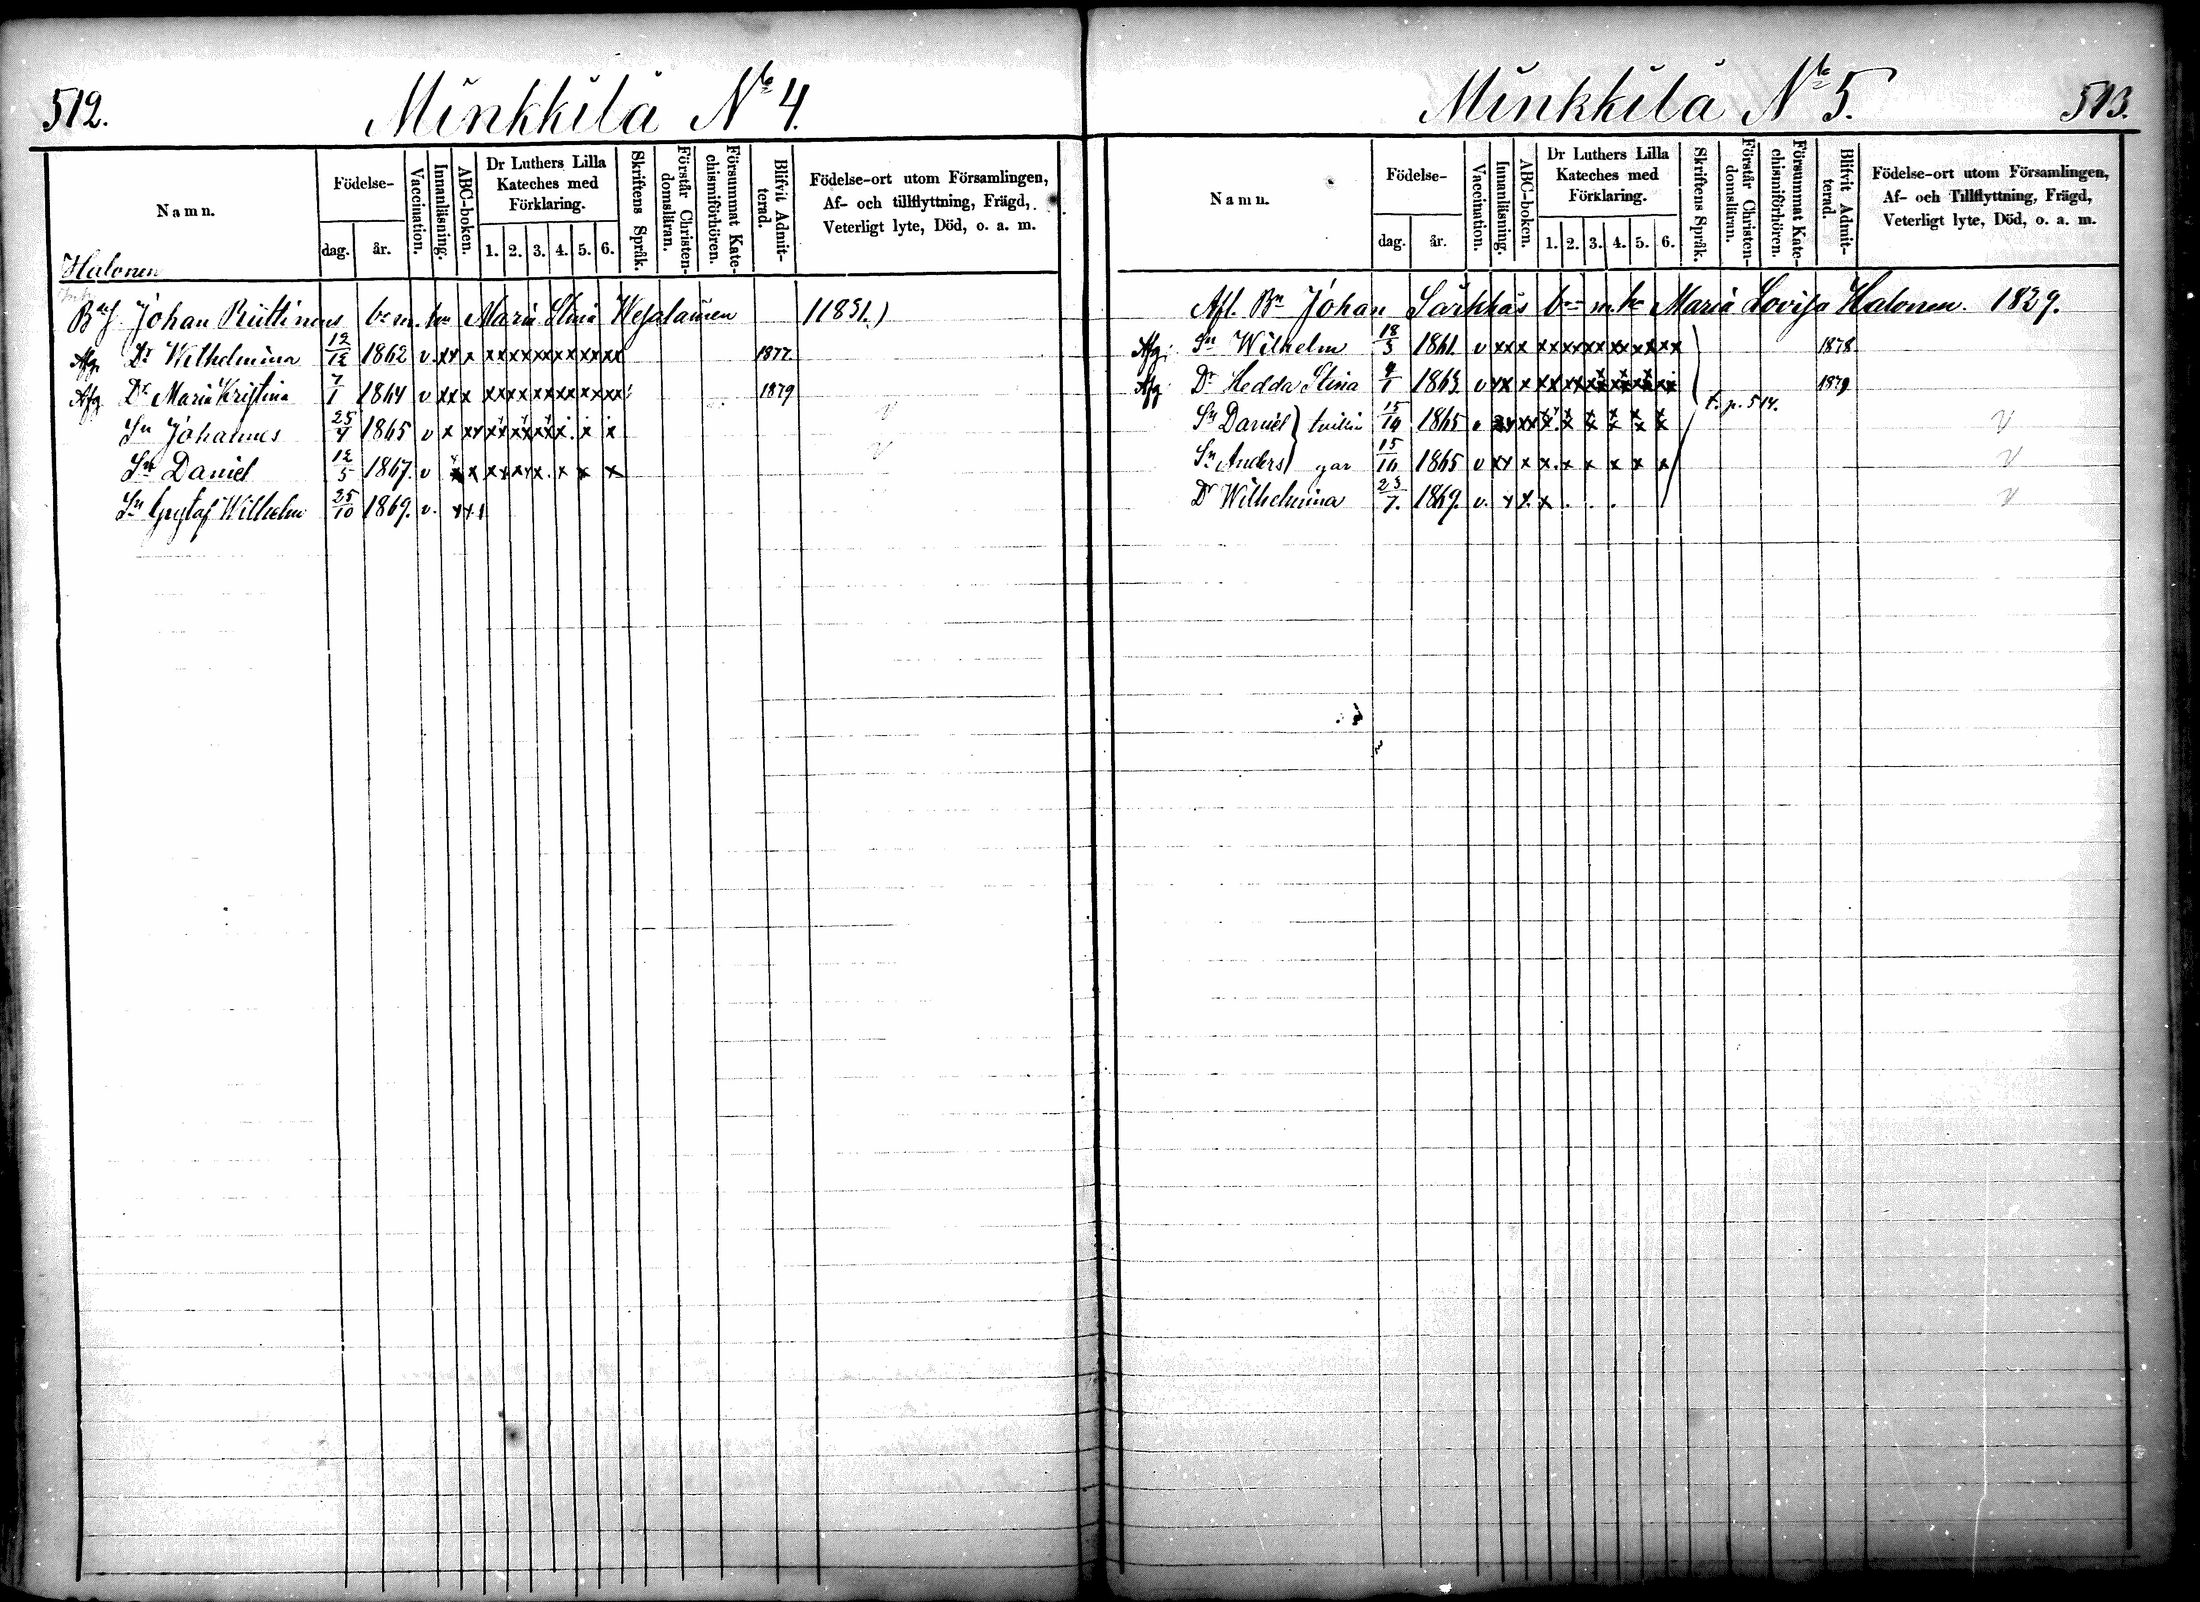 512.
Minkkilä No 4.
Namn.
Födelse-
dag.
år.
Vaccination.
Innanläsning.
ABC-boken.
Dr Luthers Lilla Kateches med Förklaring.
1. 2. 3. 4. 5. 6.
Skriftens Språk.
Förstår Christen-domsläran.
Försummat Kate-chismiförhören.
Blifvit Admit-terad.
Födelse-ort utom Församlingen,
Af- och tillflyttning, Frägd,
Veterligt lyte, Död, o. a. m.
Halonen
Johan Rüttinens Maria Stina 1831.)
Afg. Dr Wilhelmina 12/12 1862 v. xx x xxxxxxxxxxxx 1877.
Afg Dr Maria Kristina 7/1 1864 v xx x xxxxxxxxxxxx 1879
Sn Johannes 25/4 1865 v x xx
Sn Daniel 12/5 1867. v
Sn Gustaf Wilhelm 25/10 1869. v.
Minkkilä No 5.
513.
Namn.
Födelse-
dag.
år.
Vaccination.
Innanläsning.
ABC-boken.
Dr Luthers Lilla Kateches med Förklaring.
1. 2. 3. 4. 5. 6.
Skriftens Språk.
Förstår Christen-domsläran.
Försummat Kate-chismiförhören.
Blifvit Admit-terad.
Födelse-ort utom Församlingen,
Af- och Tillflyttning, Frägd,
Veterligt lyte, Död, o. a. m.
Afl. Bn Johan Särkkäs Maria Lovisa Halonen. 1829.
Afg. Sn Wilhelm 18/5 1861. v xx x 1878
Afg. Dr Hedda Stina 1863. v xx x 1879
t. p. 514.
Sn Daniel } tvillin 15/10 1865
Sn Anders } gar 15/10 1865 v xx x
Dr Wilhelmina 23/7. 1869. v.